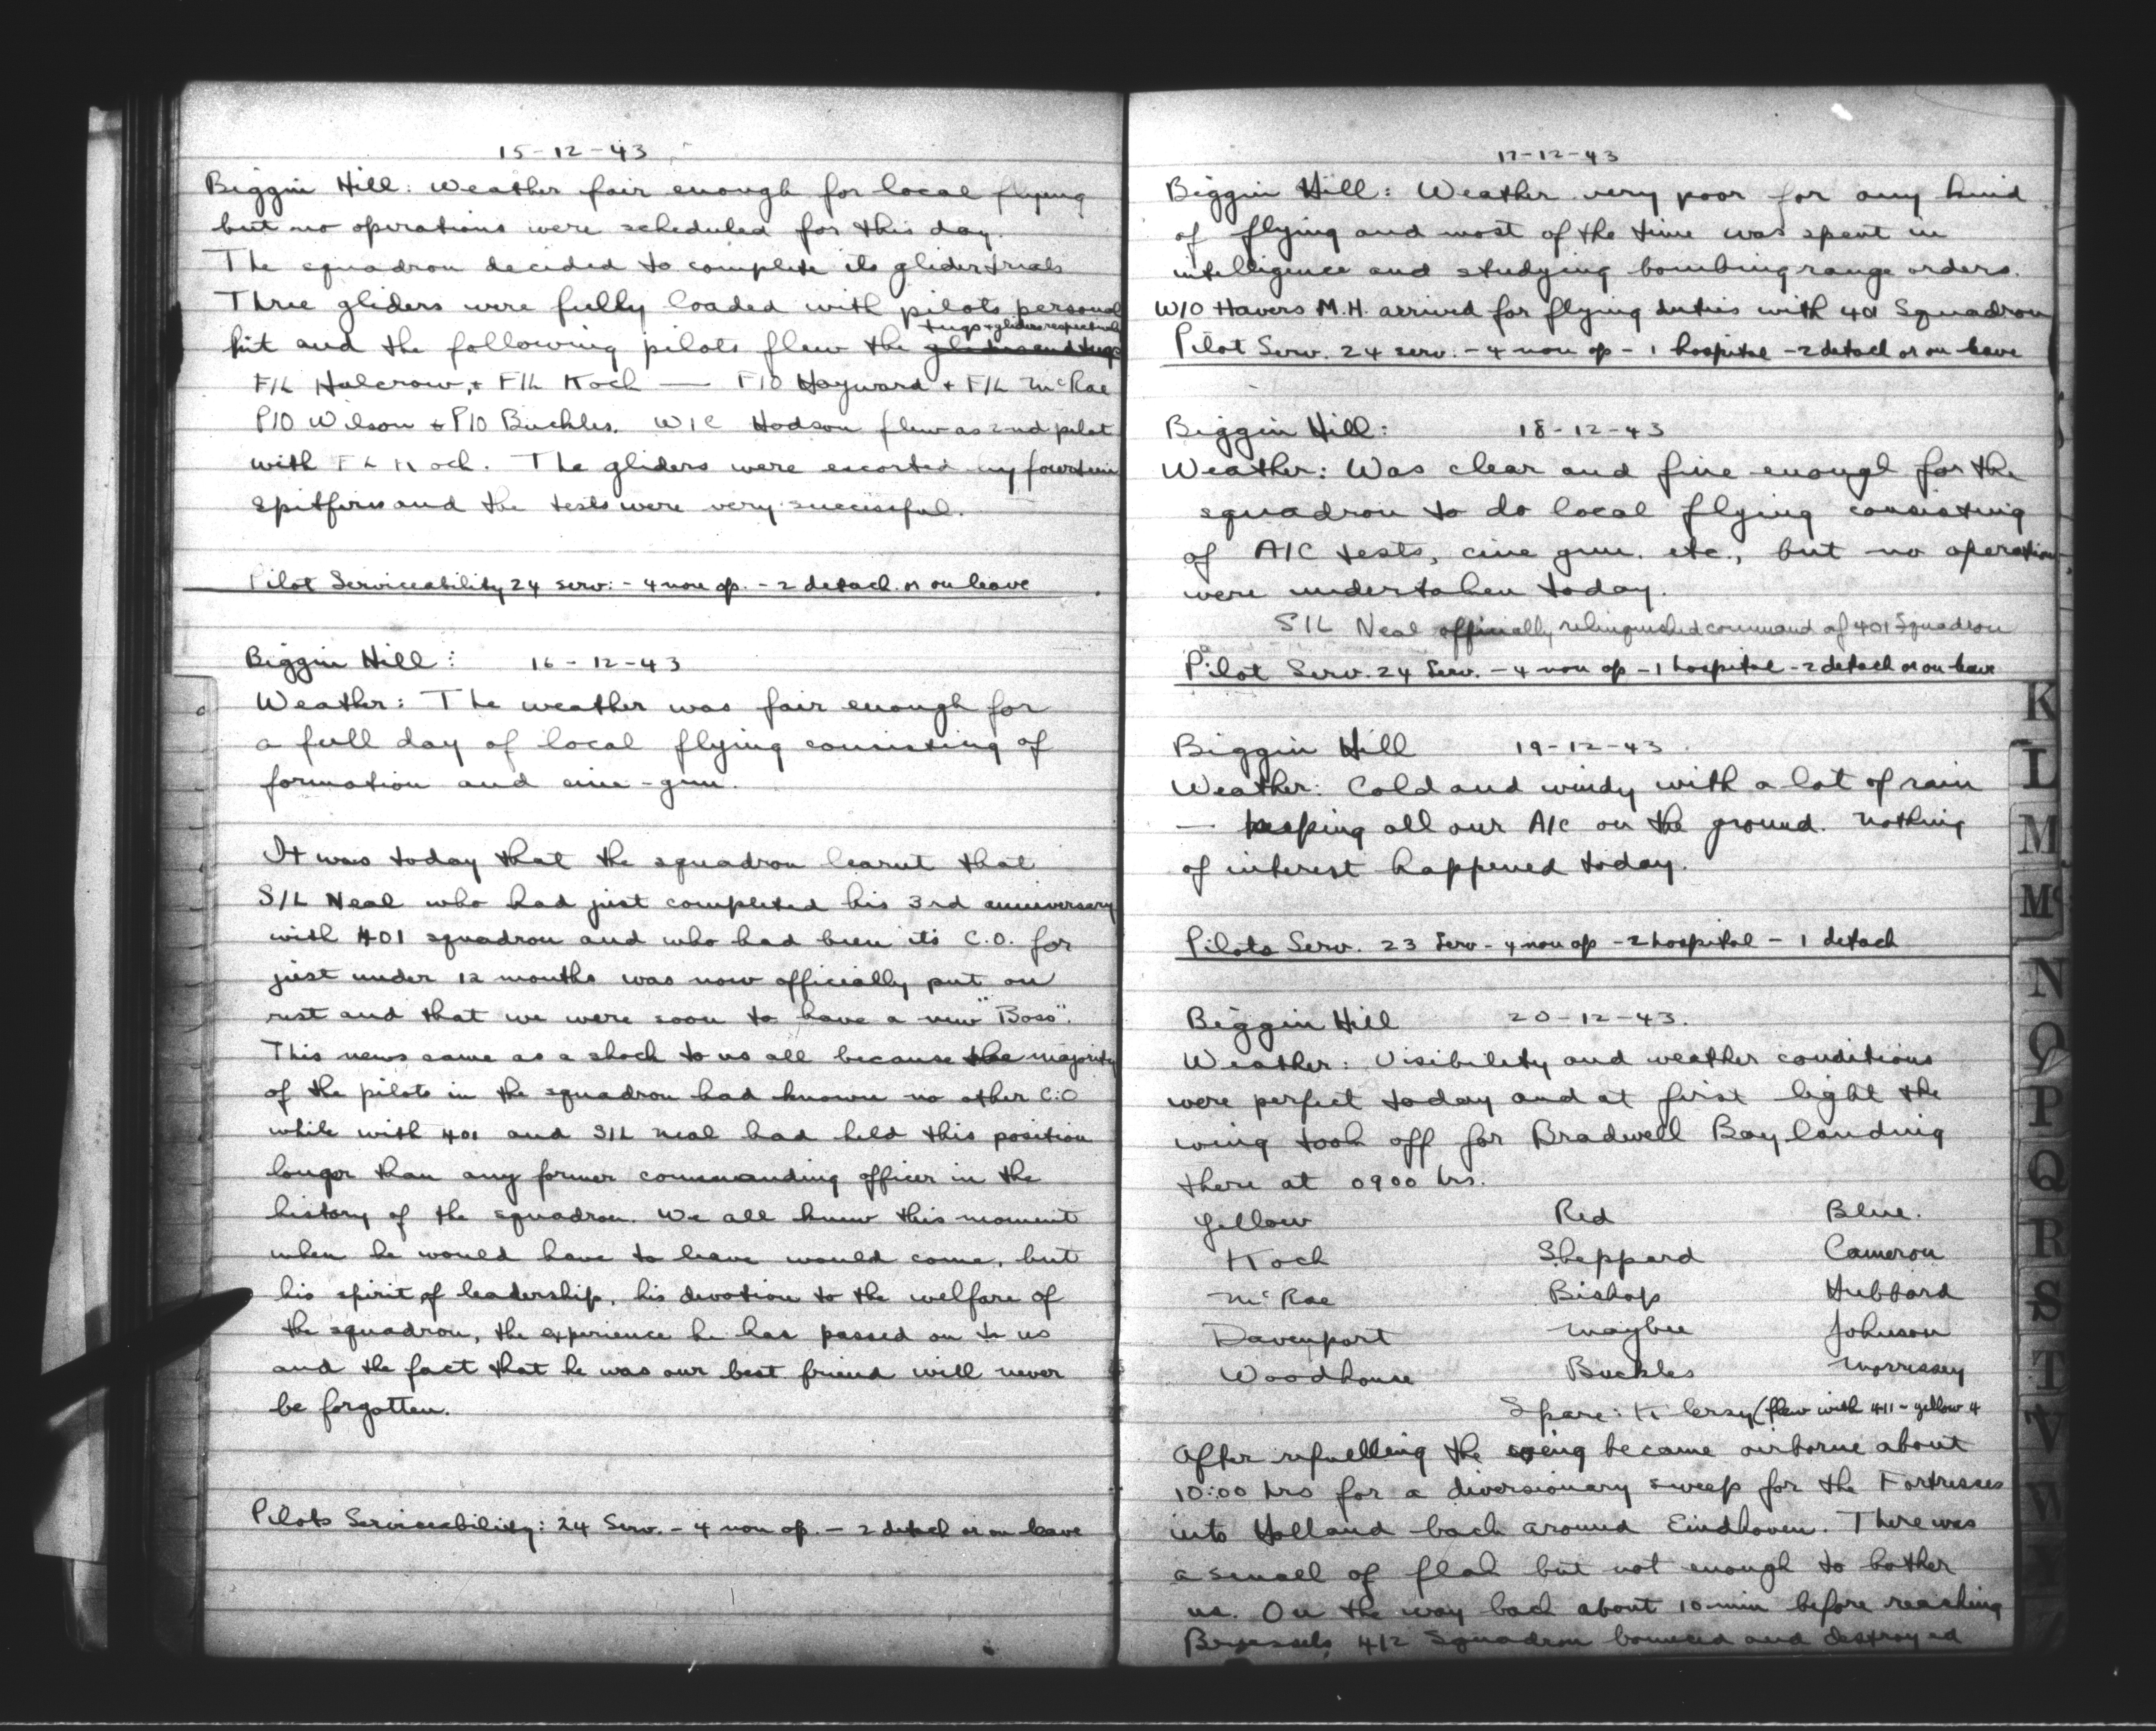 15-12-43
Biggin Hill: Weather fair enough for local flying
but no operations were scheduled for this day.
The squadron decided to complete its glider trials
Three gliders were fully loaded with pilots personal
tugs + gliders respectively
kit and the following pilots flew the gliders and tugs
F/L Halcrow, + F/L Koch — F/O Hayward + F/L McRae
P/O Wilson & P/O Buckles. W/C Hodson flew as 2nd pilot
with F/L Koch. The gliders were escorted by fourteen
Spitfires and the tests were very successful.
Pilot Serviceability 24 serv: - 4 non op. - 2 detach. or on leave
Biggin Hill: 16-12-43
Weather: The weather was fair enough for
a full day of local flying consisting of
formation and cine-gun.
It was today that the squadron learnt that
S/L Neal who had just completed his 3rd anniversary
with 401 squadron and who had been its C.O. for
just under 12 months was now officially put on
rest and that we were soon to have a new "Boss".
This news came as a shock to us all because the majority
of the pilots in the squadron had known no other C.O
while with 401 and S/L Neal had held this position
longer than any former commanding officer in the
history of the squadron. We all knew this moment
when he would have to leave would come, but
his spirit of leadership, his devotion to the welfare of
the squadron, the experience he has passed on to us
and the fact that he was our best friend will never
be forgotten.
Pilots Serviceability: 24 Serv. - 4 non op. - 2 detach or on leave
17-12-43
Biggin Hill: Weather very poor for any kind
of flying and most of the time was spent in
intelligence and studying bombing range orders.
W/O Havers M.H. arrived for flying duties with 401 Squadron
Pilot Serv. 24 serv. - 4 non op - 1 hospital - 2 detach or on leave
Biggin Hill: 18-12-43
Weather: Was clear and fine enough for the
squadron to do local flying consisting
of A/C tests, cine gun. etc., but no operations
were undertaken today.
S/L Neal officially relinquished command of 401 Squadron
Pilot Serv. 24 Serv. - 4 non op - 1 hospital - 2 detach or on leave
Biggin Hill 19-12-43
Weather: Cold and windy with a lot of rain
— keeping all our A/C on the ground. Nothing
of interest happened today.
Pilots Serv. 23 Serv - 4 non op - 2 hospital - 1 detach
Biggin Hill 20-12-43.
Weather: Visibility and weather conditions
were perfect today and at first light the
wing took off for Bradwell Bay landing
there at 0900 hrs.
Yellow Red Blue.
Koch Sheppard Cameron
McRae Bishop Hubbard
Davenport Maybee Johnson
Woodhouse Buckles Morrissey
Spare: Klersy (flew with 411 - yellow 4
After refuelling the wing became airborne about
10:00 hrs for a diversionary sweep for the Fortresses
into Holland back around Eindhoven. There was
a small of flak but not enough to bother
us. On the way back about 10 min before reaching
Brussels, 412 Squadron bounced and destroyed
K
L
M
Mc
N
O
P
Q
R
S
T
V
W